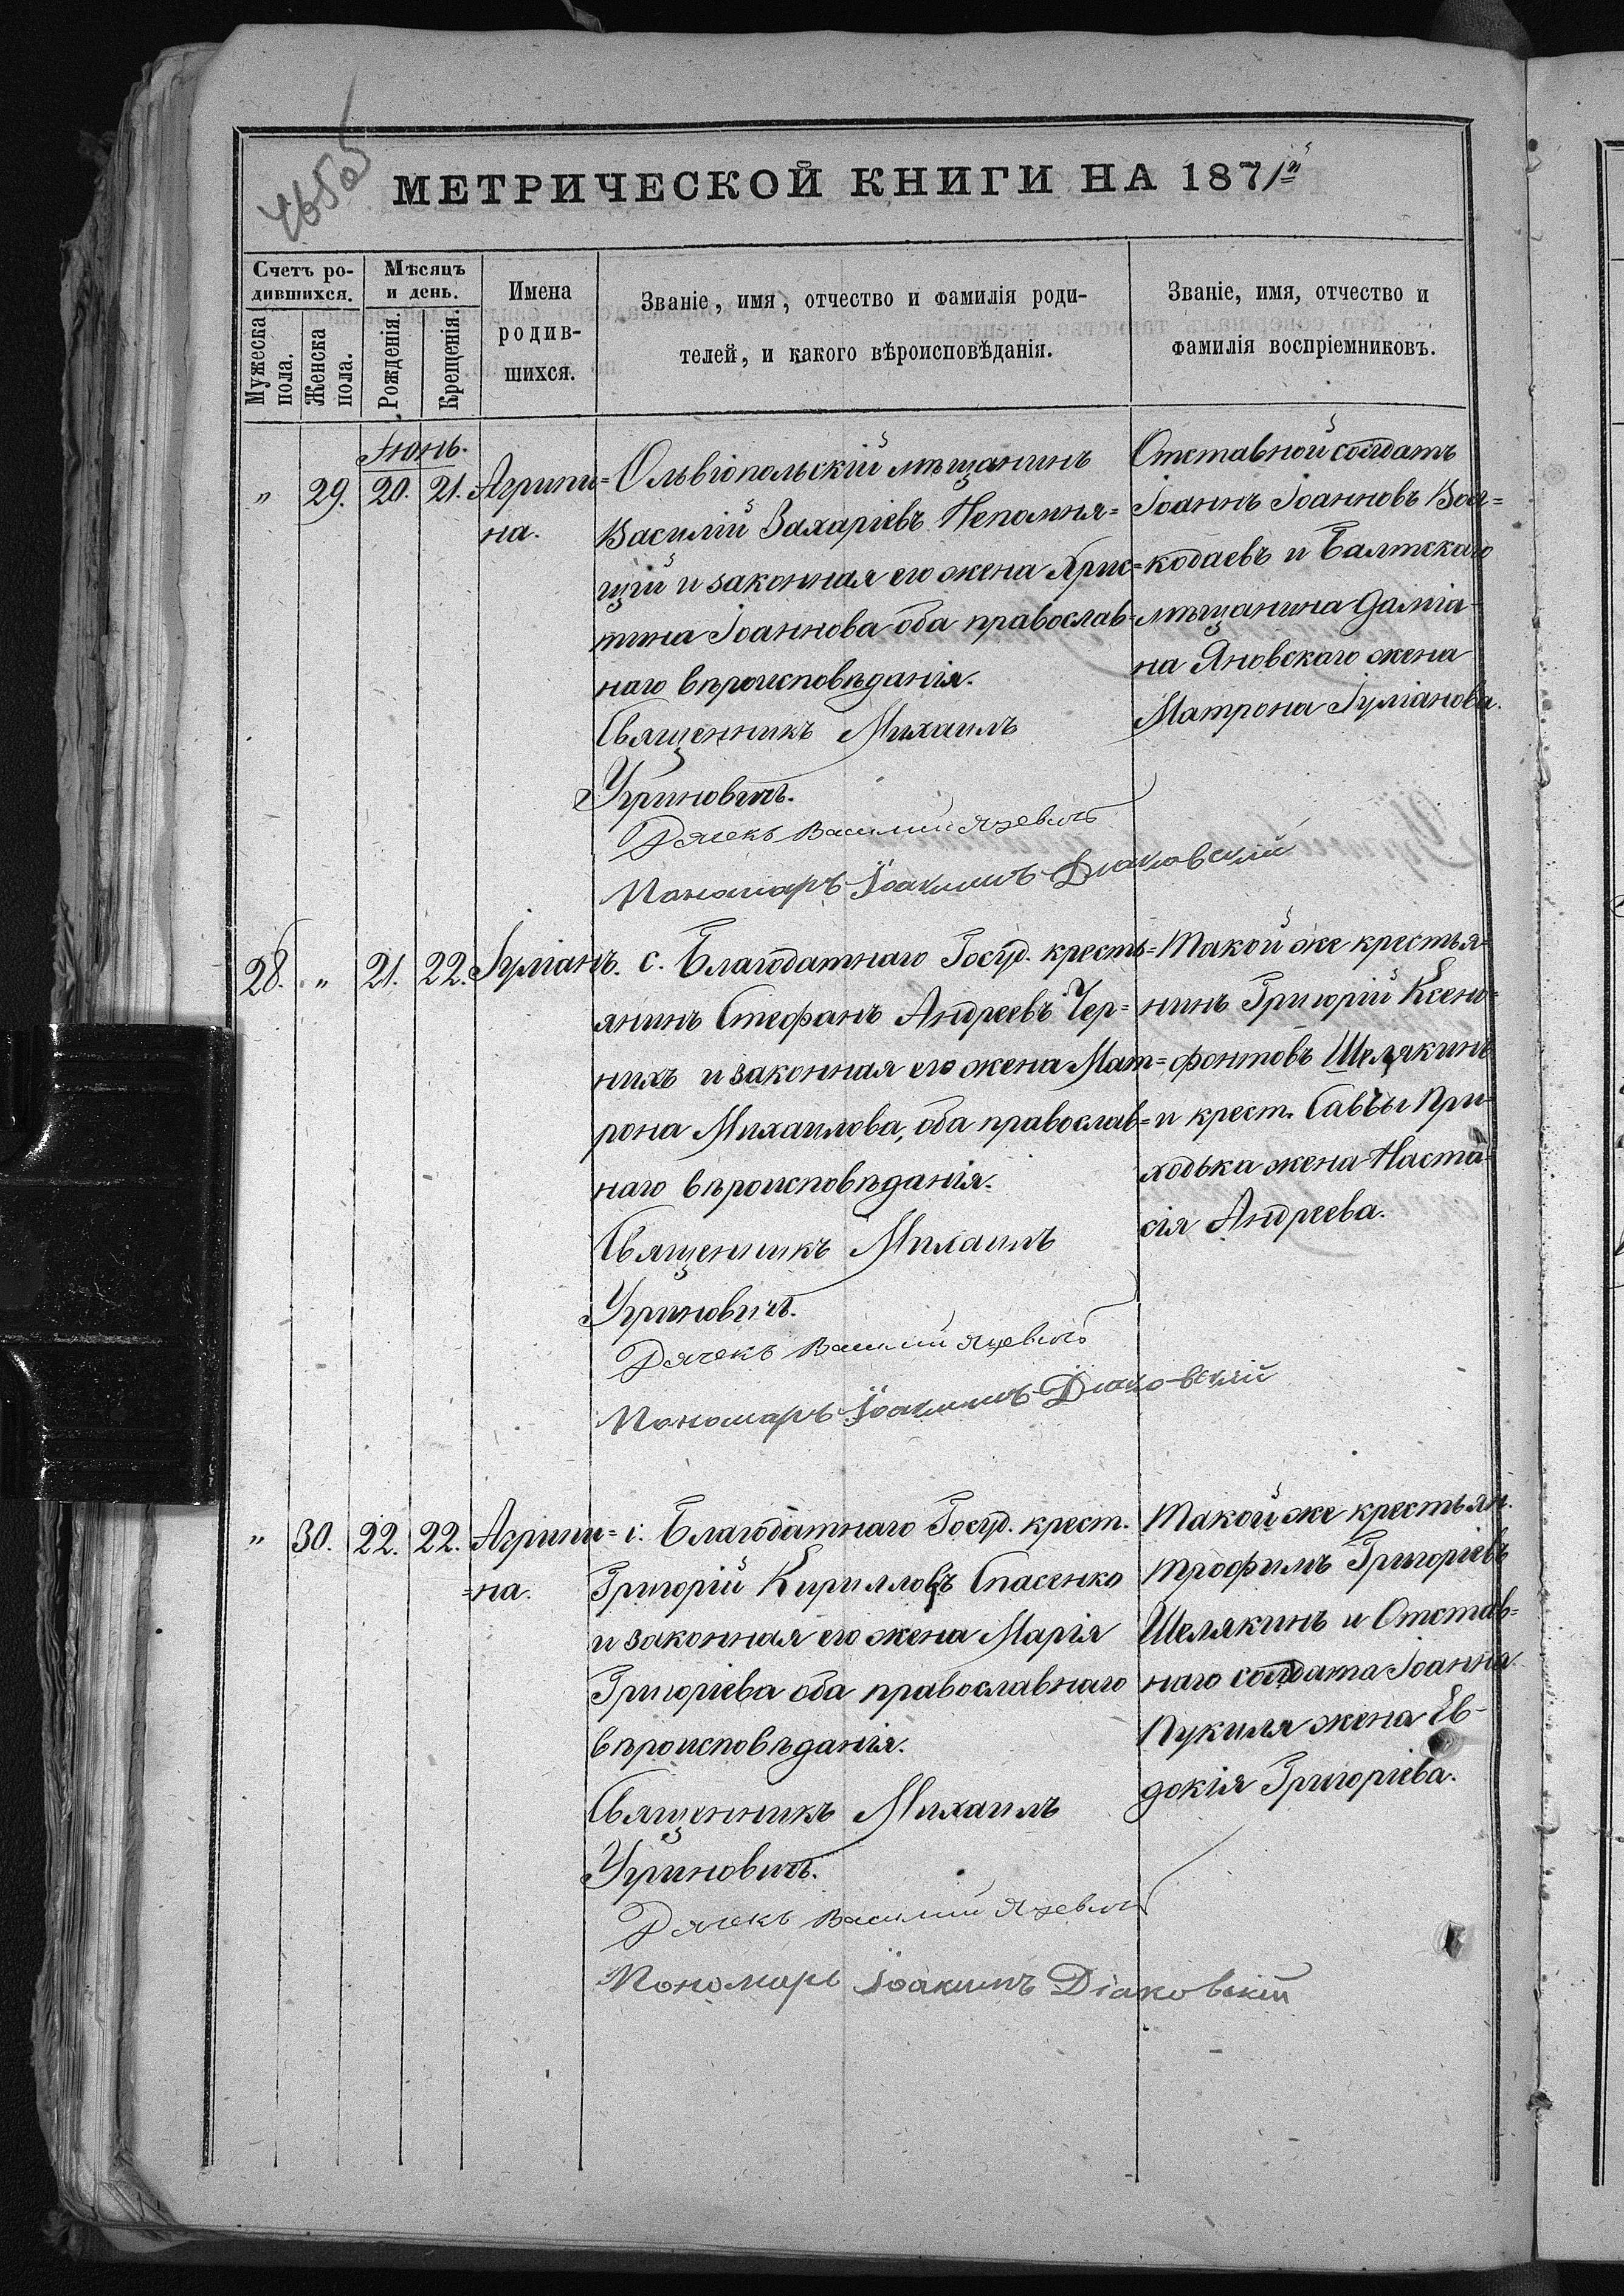 МЕТРИЧЕСКОЙ КНИГИ НА 1871й
Счетъ ро-
дившихся.
Мужеска
пола.
Женска
пола.
Мѣсяцъ
и день.
Рожденія.
Крещенія.
Имена
родив-
шихся.
Званіе, имя, отчество и фамилія роди-
телей, и какого вѣроисповѣданія.
Званіе, имя, отчество и
фамилія воспріемниковъ.
Іюнь.
„ 29. 20. 21. Агрипи=
на.
Ольвіопольскій мѣщанинъ
Василій Захаріевъ Непомня=
щій и законная его жена Хрис=
тина Іоаннова оба православ=
наго вѣроисповѣданія.
Священникъ Михаилъ
Угриновичъ.
Дячекъ Василий Язевичъ
Пономаръ Іоакимъ Діаковскій
Отставной солдатъ
Іоаннъ Іоанновъ
и Балтскаго
мѣщанина Даміа-
на Яновскаго жена
Матрона Іуліанова.
28. „ 21. 22. Іуліанъ.
с. Благодатнаго Госуд. кресть=
янинъ Стефанъ Андреевъ Чер=
нихъ и законная его жена Мат=
рона Михаилова, оба православ=
наго вѣроисповѣданія.
Священникъ Михаилъ
Угриновичъ.
Дячекъ Василий Язевичъ
Пономаръ Іоакимъ Діаковскій
Такой же крестья-
нинъ Григорій Ксено=
фонтовъ Шелякинъ
и крест. Саввы При-
ходька жена Наста-
сія Андреева.
„ 30. 22. 22. Агрипи=
=на.
с. Благодатнаго Госуд. крест.
Григорій Кирилловъ Спасенко
и законная его жена Марія
Григоріева оба православнаго
вѣроисповѣданія.
Священникъ Михаилъ
Угриновичъ.
Дячекъ Василий Язевичъ
Пономаръ Іоакимъ Діаковскій
Такой же крестьян.
Трофимъ Григоріевъ
Шелякинъ и Отстав=
наго солдата Іоанна
Пукиля жена Ев-
докія Григоріева.